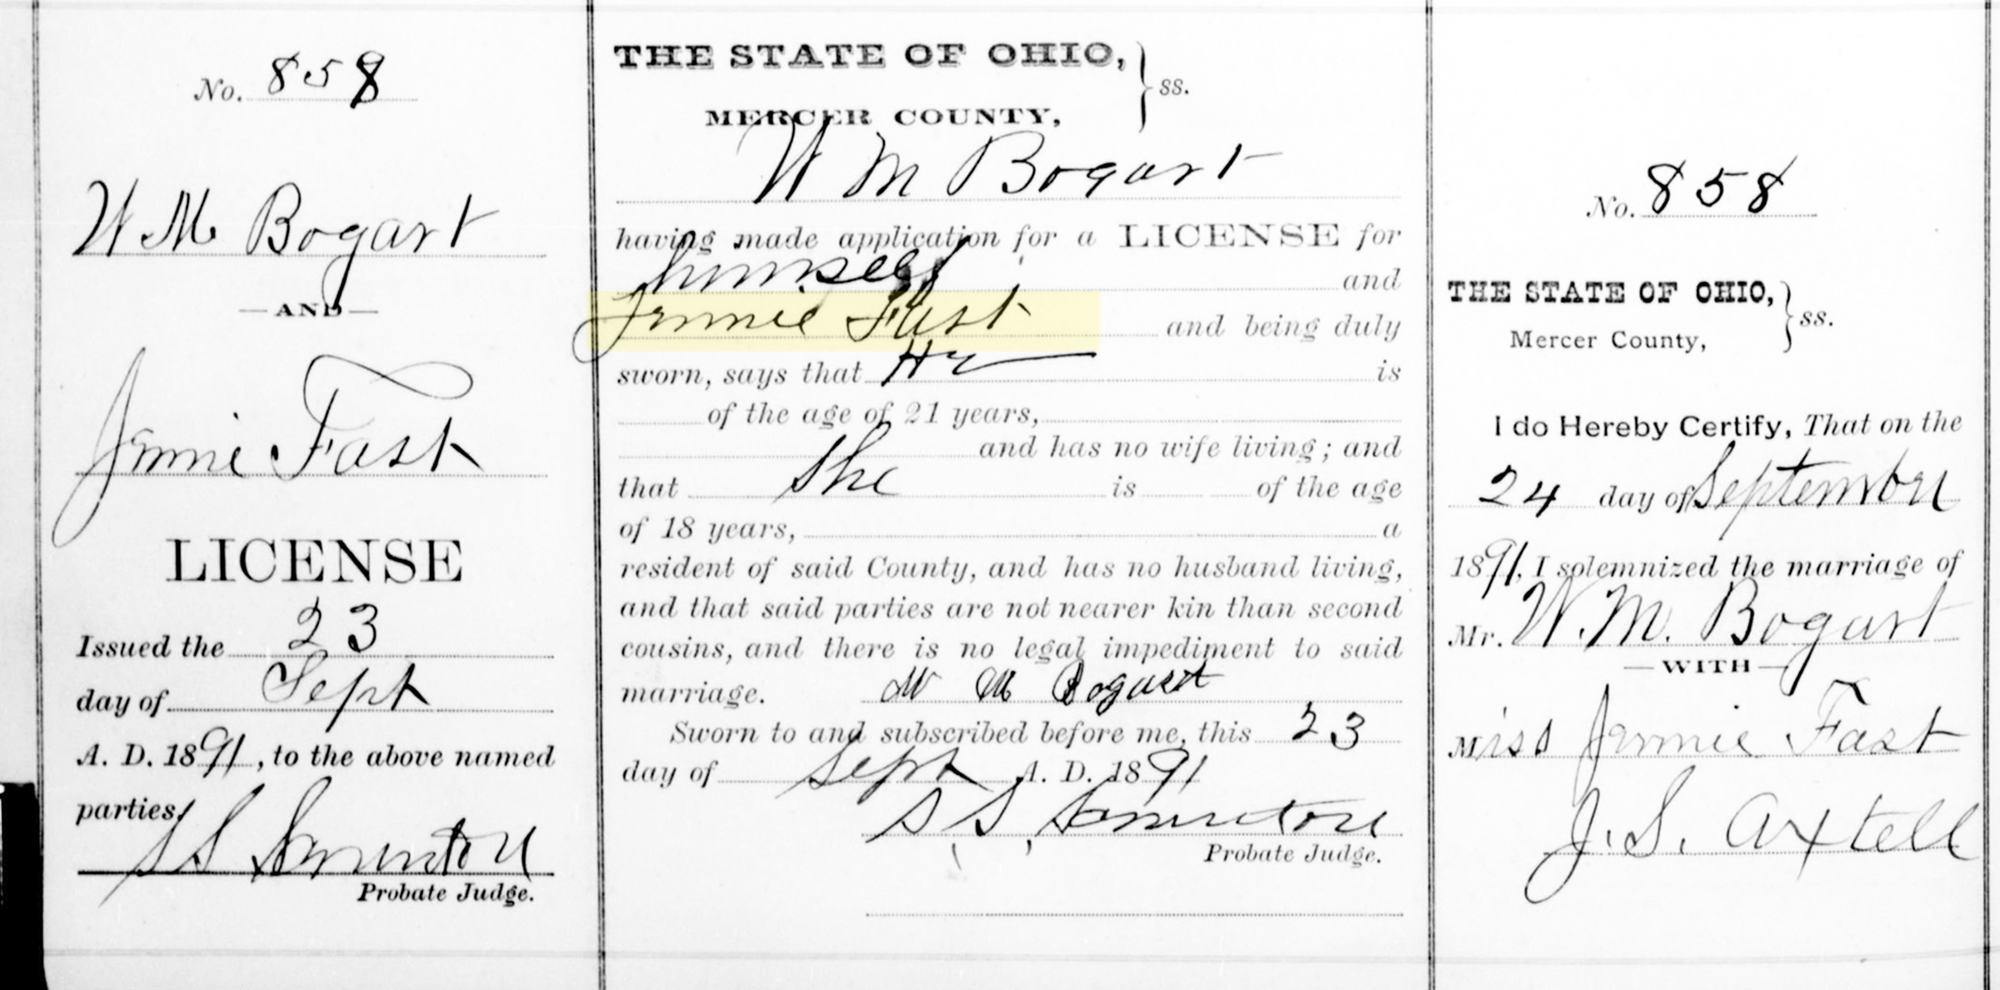 No. 858
W M Bogart
—AND—
Jennie Fast
LICENSE
Issued the 23
day of Sept
A. D. 1891, to the above named
parties,
S S
Probate Judge.
THE STATE OF OHIO,
MERCER COUNTY, } ss.
W M Bogart
having made application for a LICENSE for
himself and
Jennie Fast and being duly
sworn, says that He is
of the age of 21 years,
and has no wife living; and
that She is of the age
of 18 years, a
resident of said County, and has no husband living,
and that said parties are not nearer kin than second
cousins, and there is no legal impediment to said
marriage. W M Bogart
Sworn to and subscribed before me, this 23
day of Sept A. D. 1891
S S
Probate Judge.
No. 858
THE STATE OF OHIO,
Mercer County, } ss.
I do Hereby Certify, That on the
24 day of September
1891, I solemnized the marriage of
Mr. W. M. Bogart
—WITH—
Miss Jennie Fast
J. S. Axtell